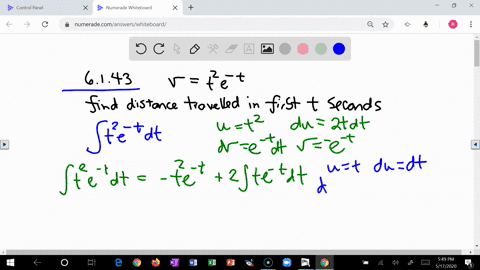 Control Panel
Numerade Whiteboard
numerade.com/answers/whiteboard/
6.1.43 v = t²e^{-t}
find distance travelled in first t seconds
∫t²e^{-t}dt u = t² du = 2tdt
dv = e^{-t}dt v = -e^{-t}
∫t²e^{-t}dt = -t²e^{-t} + 2∫te^{-t}dt u = t du = dt
d
5:49 PM
5/17/2020